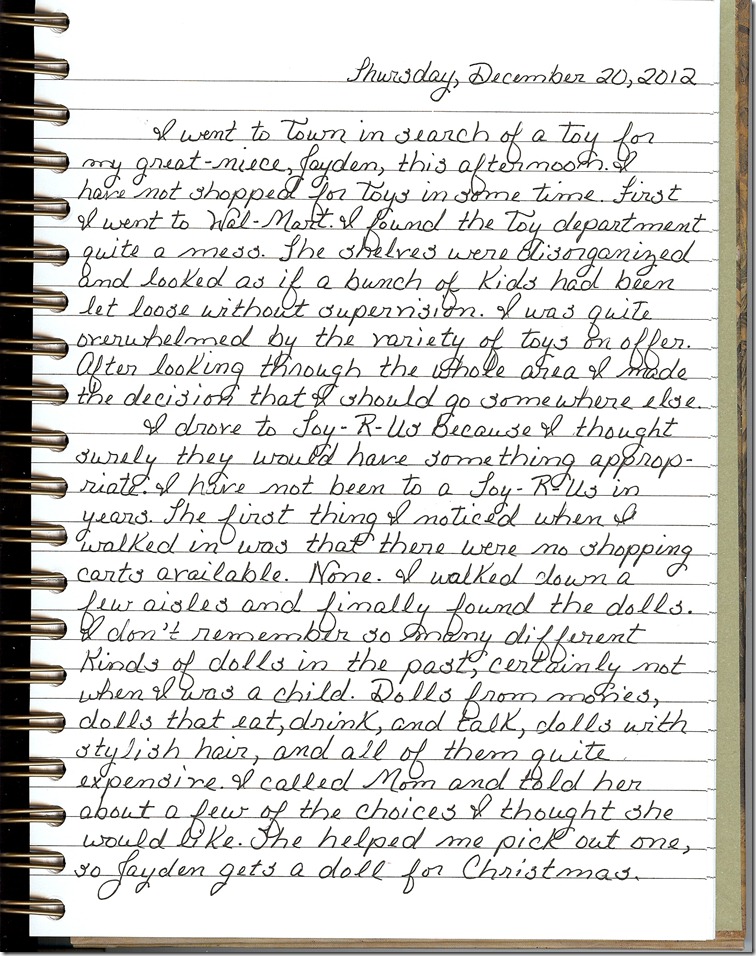 Thursday, December 20, 2012
I went to Town in search of a toy for
my great-niece, Jayden, this afternoon. I
have not shopped for Toys in some time. First
I went to Wal-Mart. I found the Toy department
quite a mess. The shelves were disorganized
and looked as if a bunch of Kids had been
let loose without supervision. I was quite
overwhelmed by the variety of toys on offer.
After looking through the whole area I made
the decision that I should go somewhere else.
I drove to Toy-R-Us Because I thought
surely they would have something approp-
riate. I have not been to a Toy-R-Us in
years. The first thing I noticed when I
walked in was that there were no shopping
carts available. None. I walked down a
few aisles and finally found the dolls.
I don't remember so many different
Kinds of dolls in the past, certainly not
when I was a child. Dolls from movies,
dolls that eat, drink, and talk, dolls with
stylish hair, and all of them quite
expensive. I called Mom and told her
about a few of the choices I thought she
would like. She helped me pick out one,
so Jayden gets a doll for Christmas.